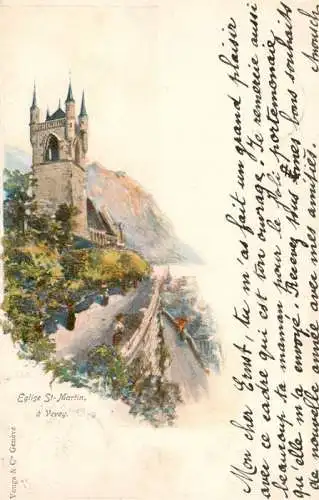 Mon cher Ernst, tu m'as fait un grand plaisir
avec ce cadre qui est ton ouvrage. Je remercie aussi
beaucoup ta maman pour le joli portemonnaie
qu'elle m'a envoyé. Recevez tous
nouvelle année avec mes amitiés.
Eglise St-Martin,
à Vevey.
Vouga & Cie Genève